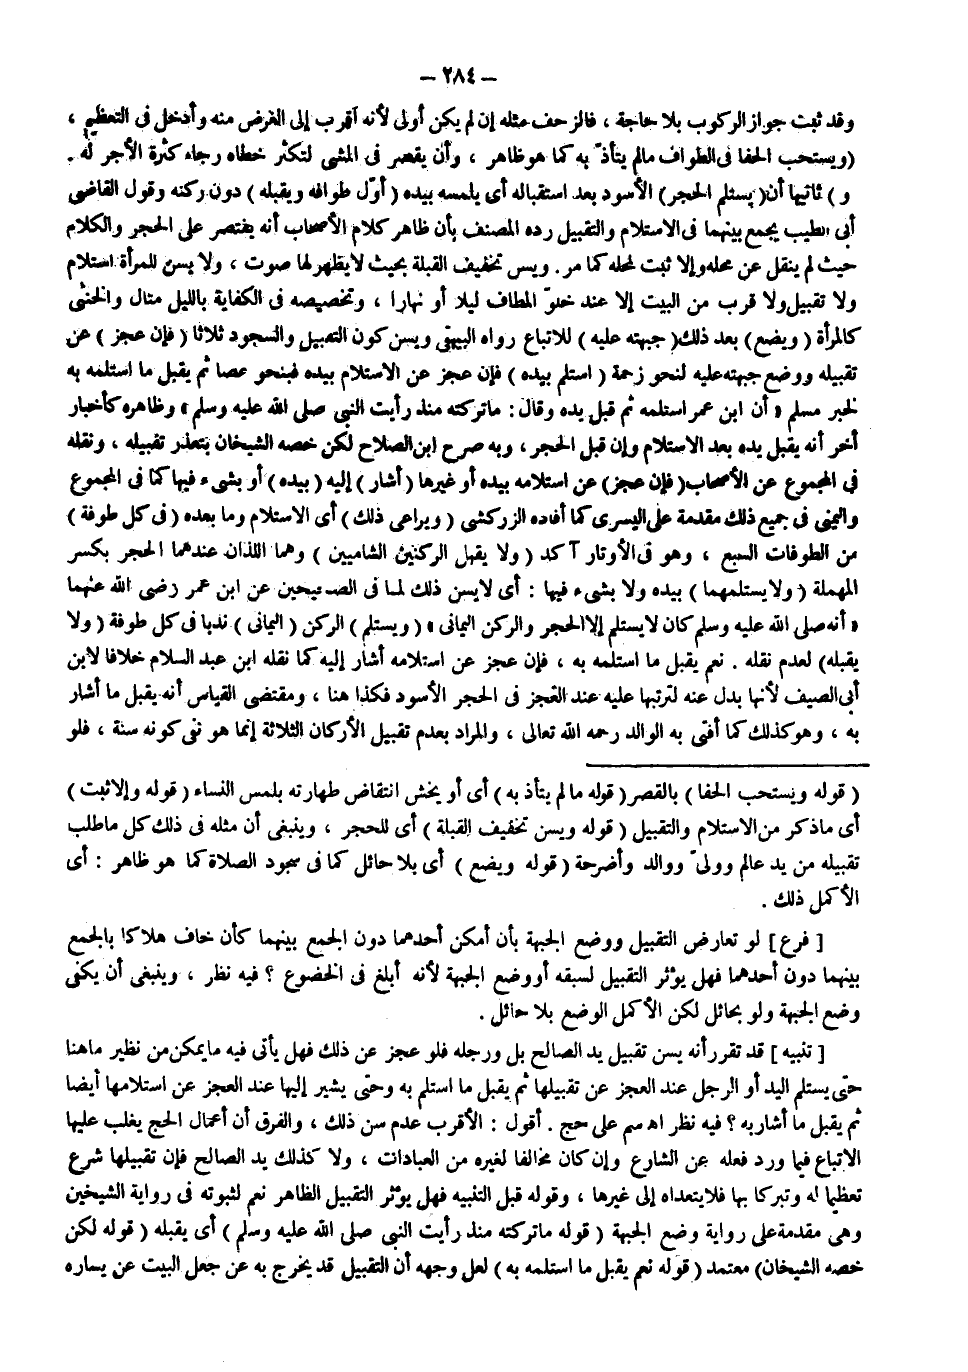 — ٢٨٤ —
وقد ثبت جواز الركوب بلا حاجة ، فالزحف مثله إن لم يكن أولى لأنه أقرب إلى الغرض منه وأدخل فى التعظيم ،
(ويستحب الحفا فى الطواف مالم يتأذّ به كما هوظاهر ، وأن يقصر فى المشى لتكثر خطاه رجاء كثرة الأجر له .
و ) ثانيها أن( يستلم الحجر) الأسود بعد استقباله أى يلمسه بيده ( أوّل طوافه ويقبله ) دون ركنه وقول القاضى
أبى الطيب يجمع بينهما فى الاستلام والتقبيل رده المصنف بأن ظاهر كلام الأصحاب أنه يقتصر على الحجر والكلام
حيث لم ينقل عن محله وإلا ثبت لمحله كما مر . ويسن تخفيف القبلة بحيث لايظهر لها صوت ، ولا يسن للمرأة استلام
ولا تقبيل ولا قرب من البيت إلا عند خلوّ المطاف ليلا أو نهارا ، وتخصيصه فى الكفاية بالليل مثال والخنثى
كالمرأة ( ويضع) بعد ذلك( جبهته عليه ) للاتباع رواه البيهقى ويسن كون التقبيل والسجود ثلاثا ( فإن عجز ) عن
تقبيله ووضع جبهته عليه لنحو زحمة ( استلم بيده ) فإن عجز عن الاستلام بيده فبنحو عصا ثم يقبل ما استلمه به
لخبر مسلم « أن ابن عمر استلمه ثم قبل يده وقال : ماتركته منذ رأيت النبى صلى الله عليه وسلم » وظاهره كأخبار
أخر أنه يقبل يده بعد الاستلام وإن قبل الحجر ، وبه صرح ابن الصلاح لكن خصه الشيخان بتعذر تقبيله ، ونقله
فى المجموع عن الأصحاب( فإن عجز) عن استلامه بيده أو غيرها ( أشار ) إليه ( بيده ) أو بشىء فيها كما فى المجموع
واليمنى فى جميع ذلك مقدمة على اليسرى كما أفاده الزركشى ( ويراعى ذلك ) أى الاستلام وما بعده ( فى كل طوفة )
من الطوفات السبع ، وهو فى الأوتار آكد ( ولا يقبل الركنين الشاميين ) وهما اللذان عندهما الحجر بكسر
المهملة ( ولا يستلمهما ) بيده ولا بشىء فيها : أى لايسن ذلك لما فى الصحيحين عن ابن عمر رضى الله عنهما
« أنه صلى الله عليه وسلم كان لايستلم إلا الحجر والركن اليمانى » ( ويستلم ) الركن ( اليمانى ) ندبا فى كل طوفة ( ولا
يقبله) لعدم نقله . نعم يقبل ما استلمه به ، فإن عجز عن استلامه أشار إليه كما نقله ابن عبد السلام خلافا لابن
أبى الصيف لأنها بدل عنه لترتبها عليه عند العجز فى الحجر الأسود فكذا هنا ، ومقتضى القياس أنه يقبل ما أشار
به ، وهو كذلك كما أفتى به الوالد رحمه الله تعالى ، والمراد بعدم تقبيل الأركان الثلاثة إنما هو نفى كونه سنة ، فلو
( قوله ويستحب الحفا ) بالقصر( قوله مالم يتأذ به ) أى أو يخش انتقاض طهارته بلمس النساء ( قوله وإلا ثبت )
أى ماذكر من الاستلام والتقبيل ( قوله ويسن تخفيف القبلة ) أى للحجر ، وينبغى أن مثله فى ذلك كل ماطلب
تقبيله من يد عالم وولىّ ووالد وأضرحة ( قوله ويضع ) أى بلا حائل كما فى سجود الصلاة كما هو ظاهر : أى
الأكمل ذلك .
[ فرع ] لو تعارض التقبيل ووضع الجبهة بأن أمكن أحدهما دون الجمع بينهما كأن خاف هلاكا بالجمع
بينهما دون أحدهما فهل يؤثر التقبيل لسبقه أو وضع الجبهة لأنه أبلغ فى الخضوع ؟ فيه نظر ، وينبغى أن يكفى
وضع الجبهة ولو بحائل لكن الأكمل الوضع بلا حائل .
[ تنبيه ] قد تقرر أنه يسن تقبيل يد الصالح بل ورجله فلو عجز عن ذلك فهل يأتى فيه مايمكن من نظير ماهنا
حتى يستلم اليد أو الرجل عند العجز عن تقبيلها ثم يقبل ما استلم به وحتى يشير إليها عند العجز عن استلامها أيضا
ثم يقبل ما أشار به ؟ فيه نظر اه سم على حج . أقول : الأقرب عدم سن ذلك ، والفرق أن أعمال الحج يغلب عليها
الاتباع فيما ورد فعله عن الشارع وإن كان مخالفا لغيره من العبادات ، ولا كذلك يد الصالح فإن تقبيلها شرع
تعظيما له وتبركا بها فلا يتعداه إلى غيرها ، وقوله قبل التنبيه فهل يؤثر التقبيل الظاهر نعم لثبوته فى رواية الشيخين
وهى مقدمة على رواية وضع الجبهة ( قوله ماتركته منذ رأيت النبى صلى الله عليه وسلم ) أى يقبله ( قوله لكن
خصه الشيخان) معتمد ( قوله نعم يقبل ما استلمه به ) لعل وجهه أن التقبيل قد يخرج به عن جعل البيت عن يساره